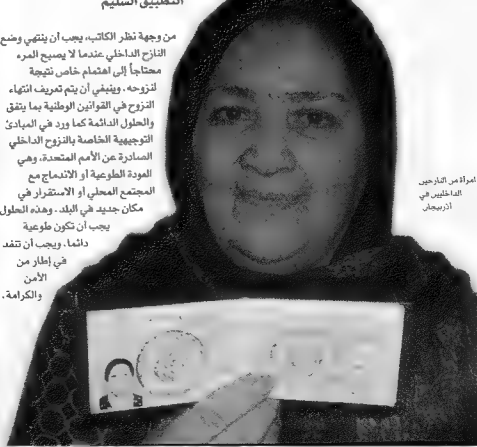 التطبيق السليم
من وجهة نظر الكاتب، يجب أن ينتهي وضع
النازح الداخلي عندما لا يصبح المرء
محتاجاً إلى اهتمام خاص نتيجة
لنزوحه. وينبغي أن يتم تعريف انتهاء
النزوح في القوانين الوطنية بما يتفق
والحلول الدائمة كما ورد في المبادئ
التوجيهية الخاصة بالنزوح الداخلي
الصادرة عن الأمم المتحدة، وهي
العودة الطوعية أو الاندماج مع
المجتمع المحلي أو الاستقرار في
مكان جديد في البلد. وهذه الحلول
يجب أن تكون طوعية
دائما، ويجب أن تنفذ
في إطار من
الأمن
والكرامة.
امرأة من النازحين
الداخليين في
أذربيجان